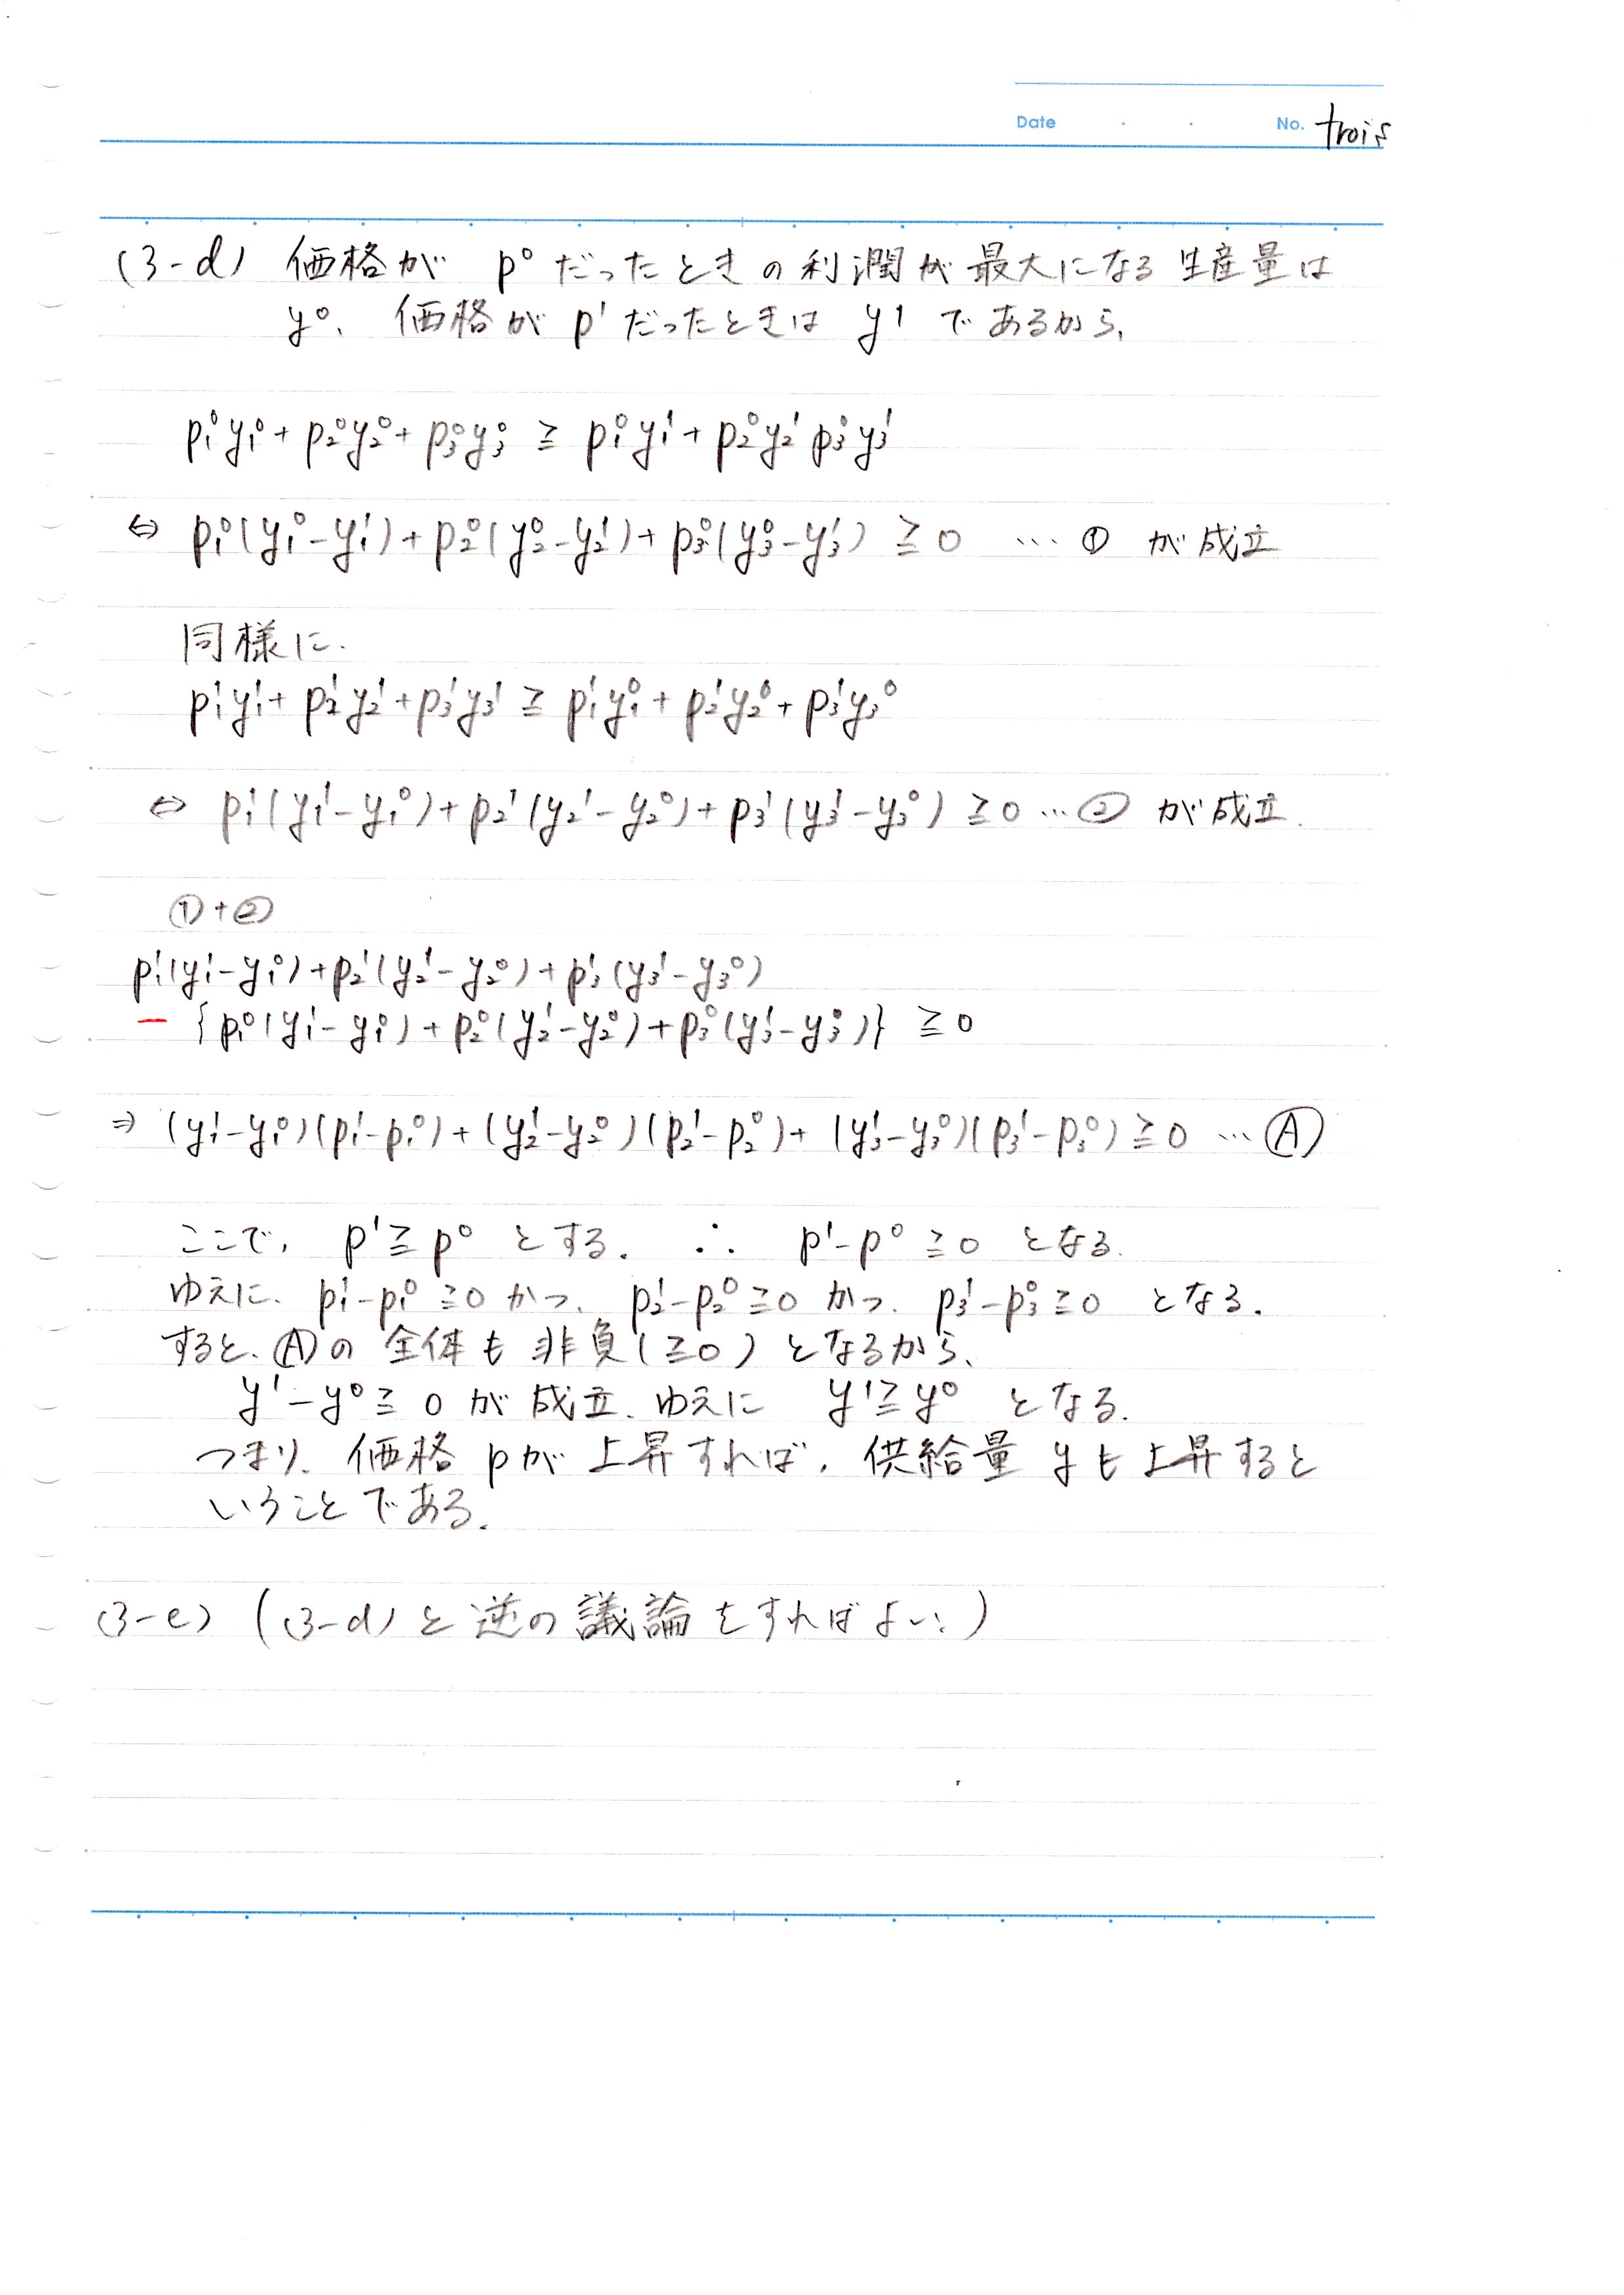 Date ・ ・ No. trois
(3-d) 価格が p⁰ だったときの利潤が最大になる生産量は
y⁰、価格が p¹ だったときは y¹ であるから、
p₁⁰y₁⁰ + p₂⁰y₂⁰ + p₃⁰y₃⁰ ≧ p₁⁰y₁¹ + p₂⁰y₂¹ p₃⁰y₃¹
⇔ p₁⁰(y₁⁰−y₁¹) + p₂⁰(y₂⁰−y₂¹) + p₃⁰(y₃⁰−y₃¹) ≧ 0 … ① が成立
同様に、
p₁¹y₁¹ + p₂¹y₂¹ + p₃¹y₃¹ ≧ p₁¹y₁⁰ + p₂¹y₂⁰ + p₃¹y₃⁰
⇔ p₁¹(y₁¹−y₁⁰) + p₂¹(y₂¹−y₂⁰) + p₃¹(y₃¹−y₃⁰) ≧ 0 … ② が成立.
①+②
p₁¹(y₁¹−y₁⁰) + p₂¹(y₂¹−y₂⁰) + p₃¹(y₃¹−y₃⁰)
− {p₁⁰(y₁¹−y₁⁰) + p₂⁰(y₂¹−y₂⁰) + p₃⁰(y₃¹−y₃⁰)} ≧ 0
⇒ (y₁¹−y₁⁰)(p₁¹−p₁⁰) + (y₂¹−y₂⁰)(p₂¹−p₂⁰) + (y₃¹−y₃⁰)(p₃¹−p₃⁰) ≧ 0 … Ⓐ
ここで、p¹ ≧ p⁰ とする. ∴ p¹−p⁰ ≧ 0 となる.
ゆえに、p₁¹−p₁⁰ ≧ 0 かつ、p₂¹−p₂⁰ ≧ 0 かつ、p₃¹−p₃⁰ ≧ 0 となる.
すると、Ⓐの全体も非負(≧0)となるから、
y¹−y⁰ ≧ 0 が成立、ゆえに y¹ ≧ y⁰ となる.
つまり、価格 p が上昇すれば、供給量 y も上昇すると
いうことである.
(3-e) ((3-d)と逆の議論をすればよい:)